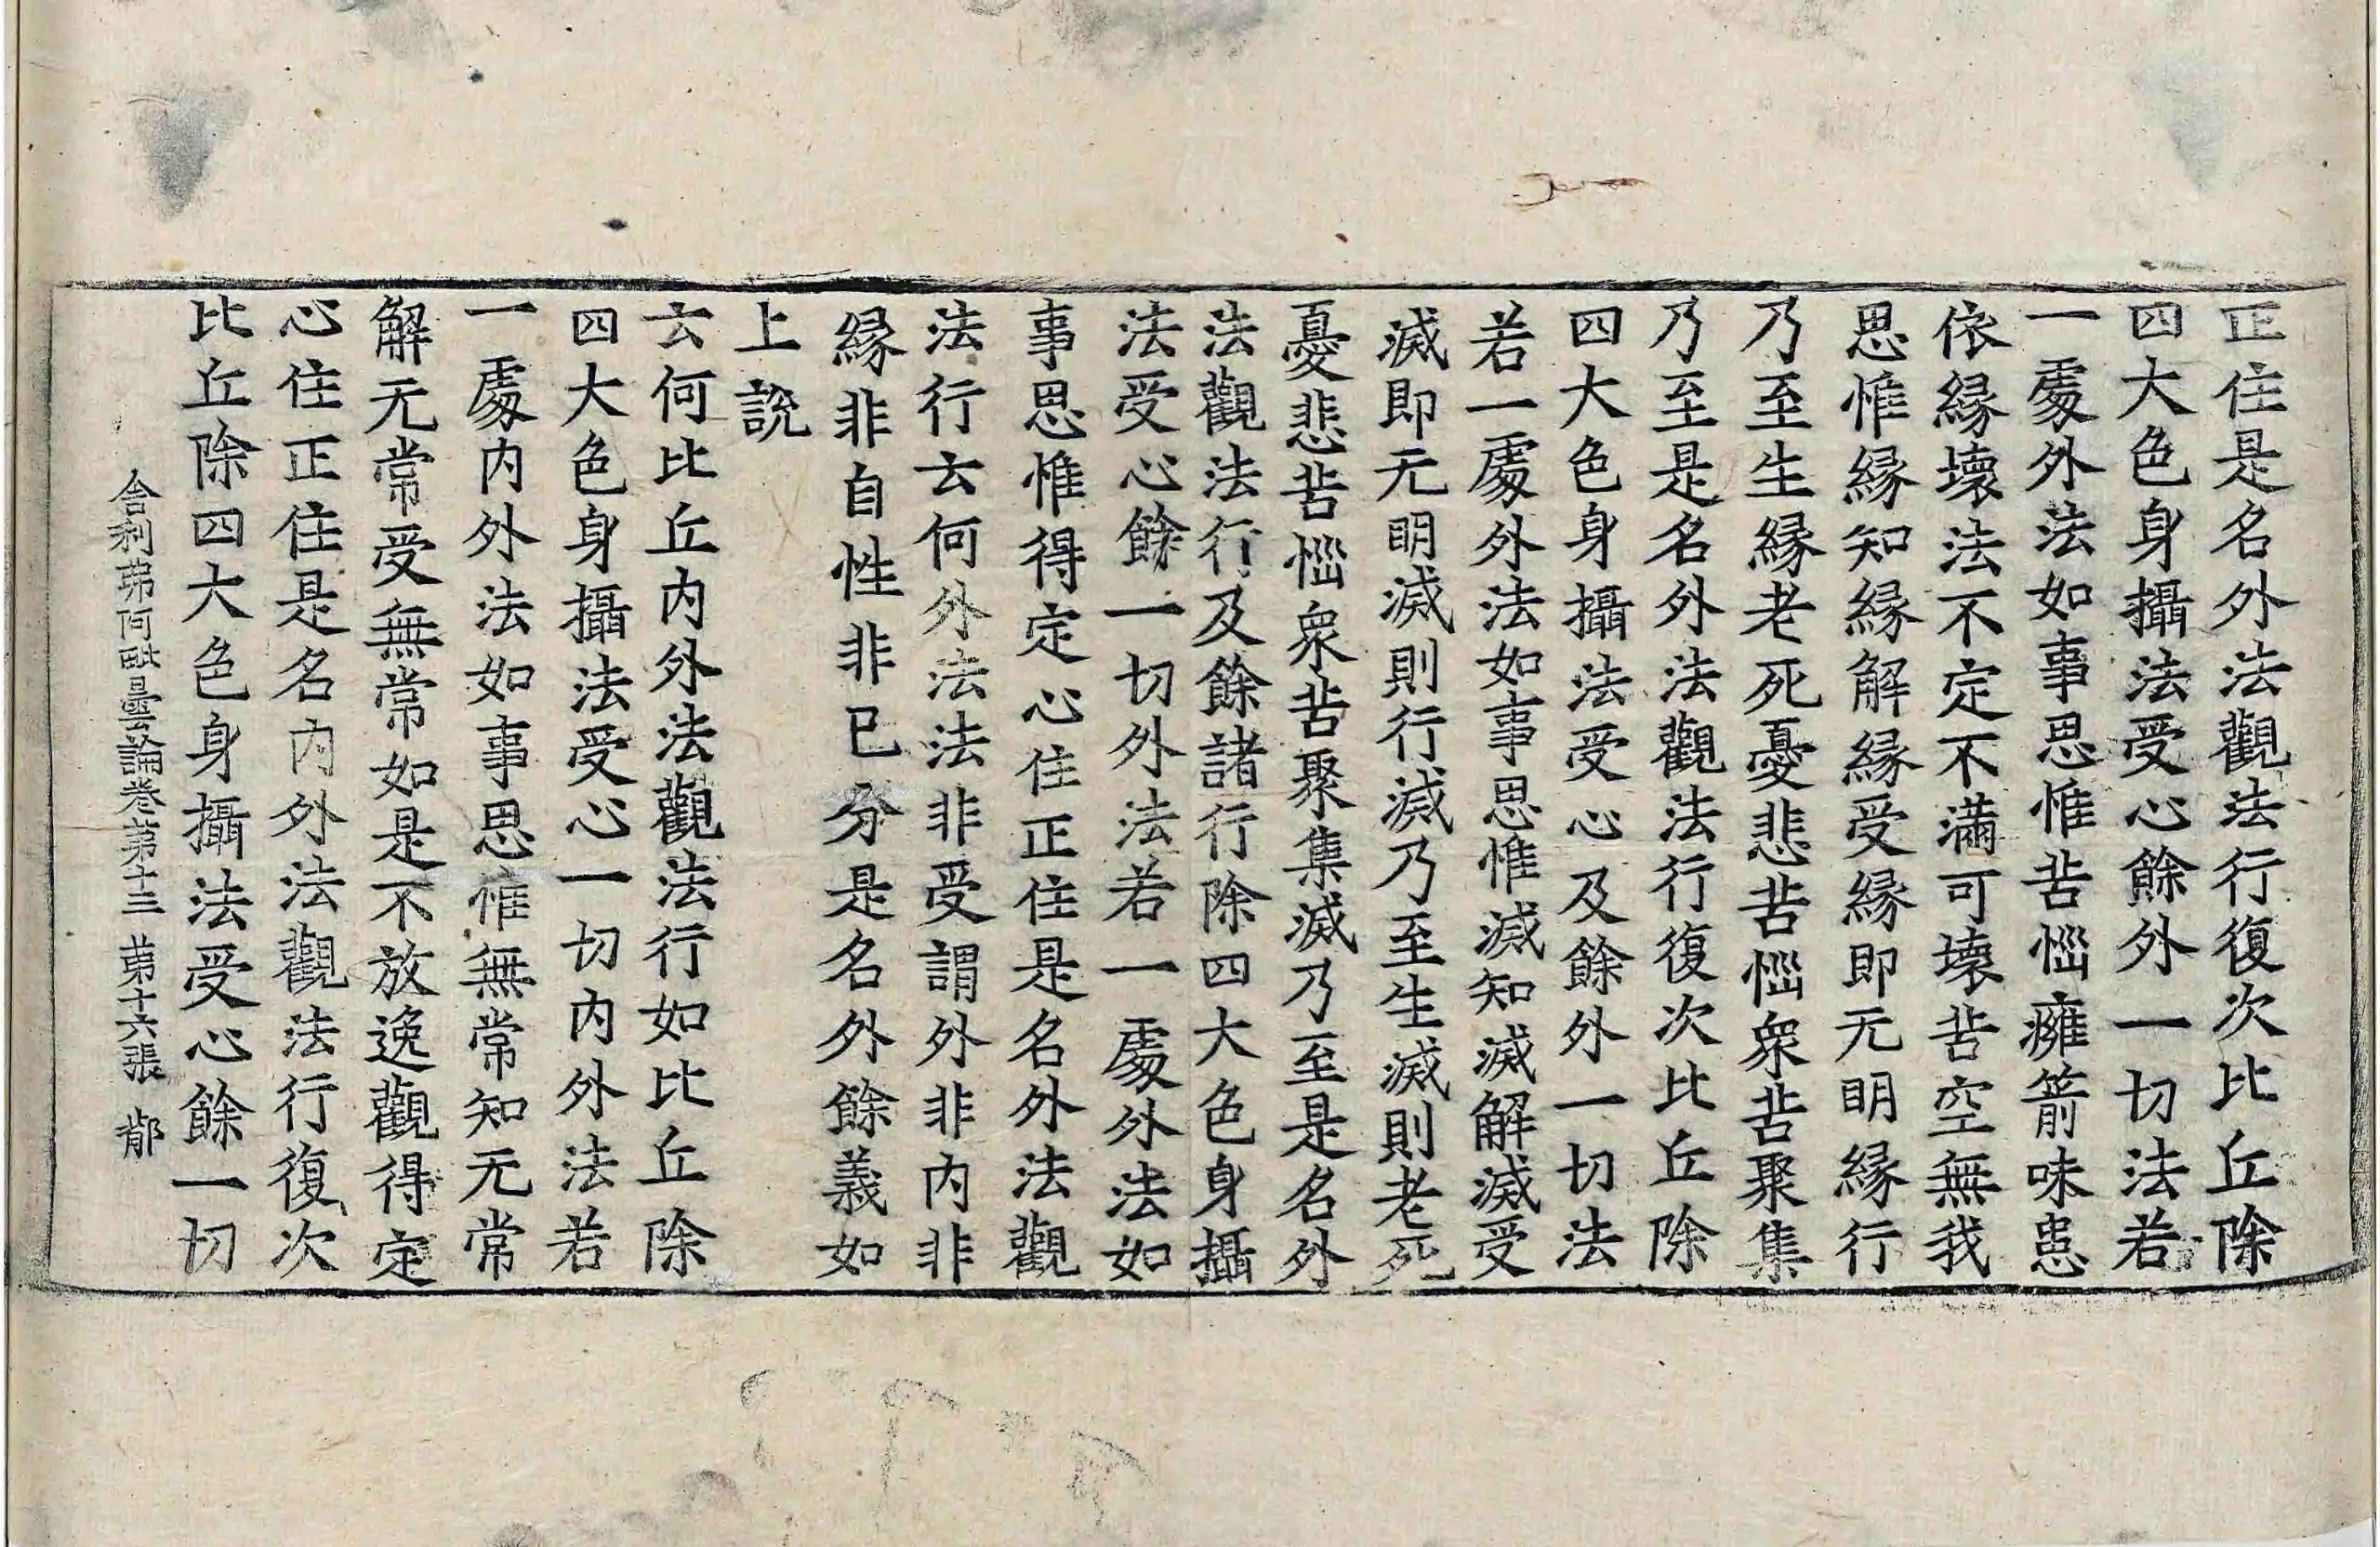 正住是名外法觀法行復次比丘除
四大色身攝法受心餘外一切法若
一處外法如事思惟苦惱癰箭味患
依緣壞法不定不滿可壞苦空無我
思惟緣知緣解緣受緣即无明緣行
乃至生緣老死憂悲苦惱衆苦聚集
乃至是名外法觀法行復次比丘除
四大色身攝法受心及餘外一切法
若一處外法如事思惟滅知滅解滅受
滅即无明滅則行滅乃至生滅則老死
憂悲苦惱衆苦聚集滅乃至是名外
法觀法行及餘諸行除四大色身攝
法受心餘一切外法若一處外法如
事思惟得定心住正住是名外法觀
法行云何外法法非受謂外非内非
緣非自性非已分是名外餘義如
上說
云何比丘内外法觀法行如比丘除
四大色身攝法受心一切内外法若
一處内外法如事思惟無常知无常
解无常受無常如是不放逸觀得定
心住正住是名内外法觀法行復次
比丘除四大色身攝法受心餘一切
舍利弗阿毗曇論卷第十三 第十六張